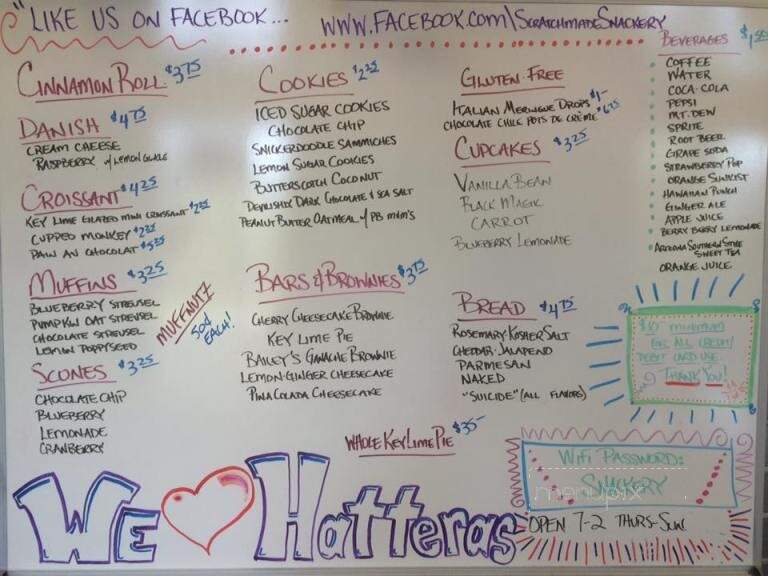 "LIKE US ON FACEBOOK...
WWW.FACEBOOK.COM\SCRATCHMADESNACKERY
CINNAMON ROLL $3.75
DANISH $4.75
CREAM CHEESE
RASPBERRY W/ LEMON GLAZE
CROISSANT $4.25
KEY LIME GLAZED MINI CROISSANT $2.25
CUPPED MONKEY $2.25
PAIN AN CHOCOLAT $5.25
MUFFINS $3.25
BLUEBERRY STREUSEL
PUMPKIN OAT STREUSEL
CHOCOLATE STREUSEL
LEMON POPPYSEED
MUFFNUTZ
50¢
EACH!
SCONES $3.25
CHOCOLATE CHIP
BLUEBERRY
LEMONADE
CRANBERRY
COOKIES $2.25
ICED SUGAR COOKIES
CHOCOLATE CHIP
SNICKERDOODLE SAMMICHES
LEMON SUGAR COOKIES
BUTTERSCOTCH COCONUT
DEVILISHLY DARK CHOCOLATE & SEA SALT
PEANUT BUTTER OATMEAL W/ PB M&M'S
BARS & BROWNIES $3.75
CHERRY CHEESECAKE BROWNIE
KEY LIME PIE
BAILEY'S GANACHE BROWNIE
LEMON-GINGER CHEESECAKE
PINA COLADA CHEESECAKE
WHOLE KEY LIME PIE $35-
GLUTEN FREE
ITALIAN MERINGUE DROPS $1-
CHOCOLATE CHILE POTS DE CRÈME $6.75
CUPCAKES $3.25
VANILLA BEAN
BLACK MAGIK
CARROT
BLUEBERRY LEMONADE
BREAD $4.75
ROSEMARY KOSHER SALT
CHEDDAR-JALAPENO
PARMESAN
NAKED
"SUICIDE" (ALL FLAVORS)
BEVERAGES
COFFEE
WATER
COCA-COLA
PEPSI
MT. DEW
SPRITE
ROOT BEER
GRAPE SODA
STRAWBERRY POP
ORANGE SUNKIST
HAWAIIAN PUNCH
GINGER ALE
APPLE JUICE
BERRY BERRY LEMONADE
ARIZONA SOUTHERN STYLE
SWEET TEA
ORANGE JUICE
$10 MINIMUM
FOR ALL CREDIT/
DEBIT CARD USE.
THANK YOU!
WIFI PASSWORD:
SNACKERY
menupix
OPEN 7-2 THURS-SUN
WE Hatteras